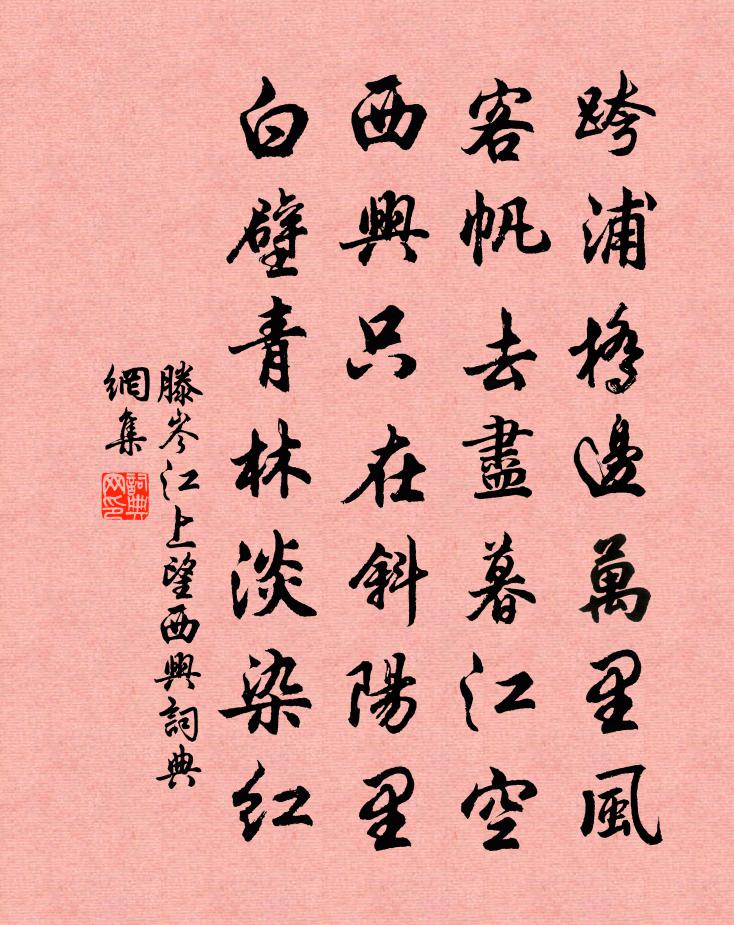 跨浦橋邊萬里風
客帆去盡暮江空
西興只在斜陽里
白壁青林淡染紅
滕岑江上望西興詞典
網集
詞典
网印